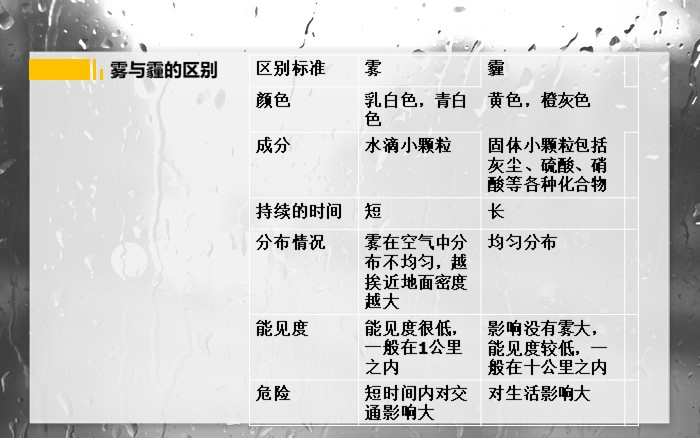 雾与霾的区别
区别标准 雾 霾
颜色 乳白色，青白 黄色，橙灰色
色
成分 水滴小颗粒 固体小颗粒包括
灰尘、硫酸、硝
酸等各种化合物
持续的时间 短 长
分布情况 雾在空气中分 均匀分布
布不均匀，越
挨近地面密度
越大
能见度 能见度很低， 影响没有雾大，
一般在1公里 能见度较低，一
之内 般在十公里之内
危险 短时间内对交 对生活影响大
通影响大